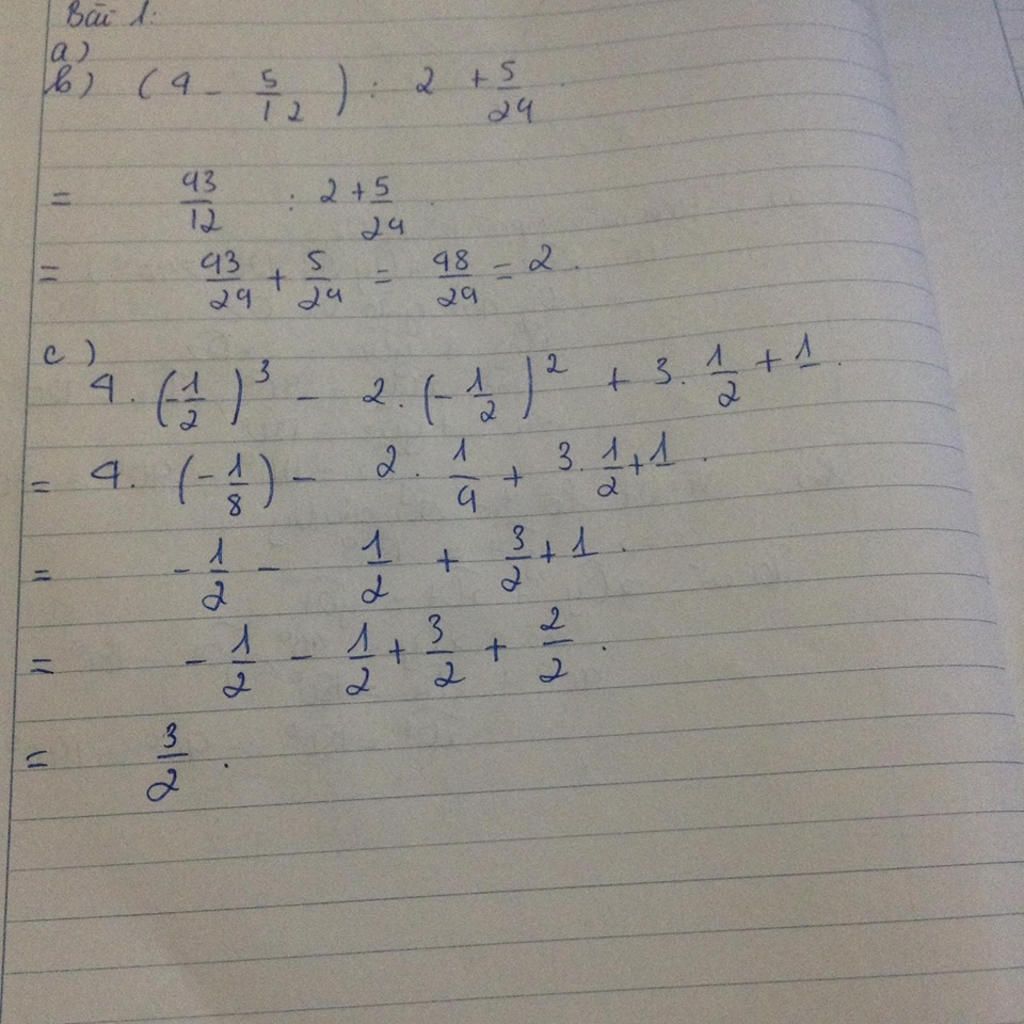 Bài 1:
a)
b) (4 - 5/12) : 2 + 5/24.
= 43/12 : 2 + 5/24.
= 43/24 + 5/24 = 48/24 = 2.
c)
4. (-1/2)^3 - 2. (-1/2)^2 + 3. 1/2 + 1.
= 4. (-1/8) - 2. 1/4 + 3. 1/2 + 1.
= -1/2 - 1/2 + 3/2 + 1.
= -1/2 - 1/2 + 3/2 + 2/2.
= 3/2.